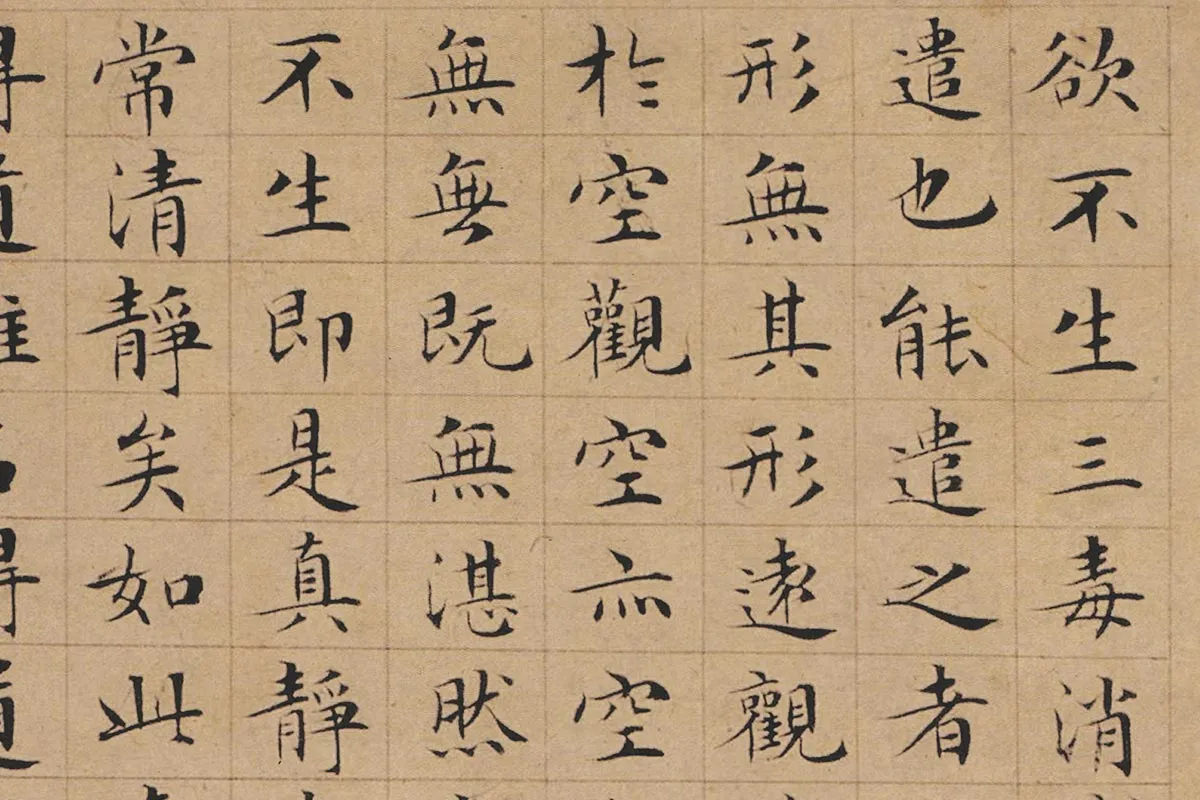 欲不生三毒消
遣也能遣之者
形無其形遠觀
於空觀空亦空
無無既無湛然
不生即是真靜
常清靜矣如此
得道
得道